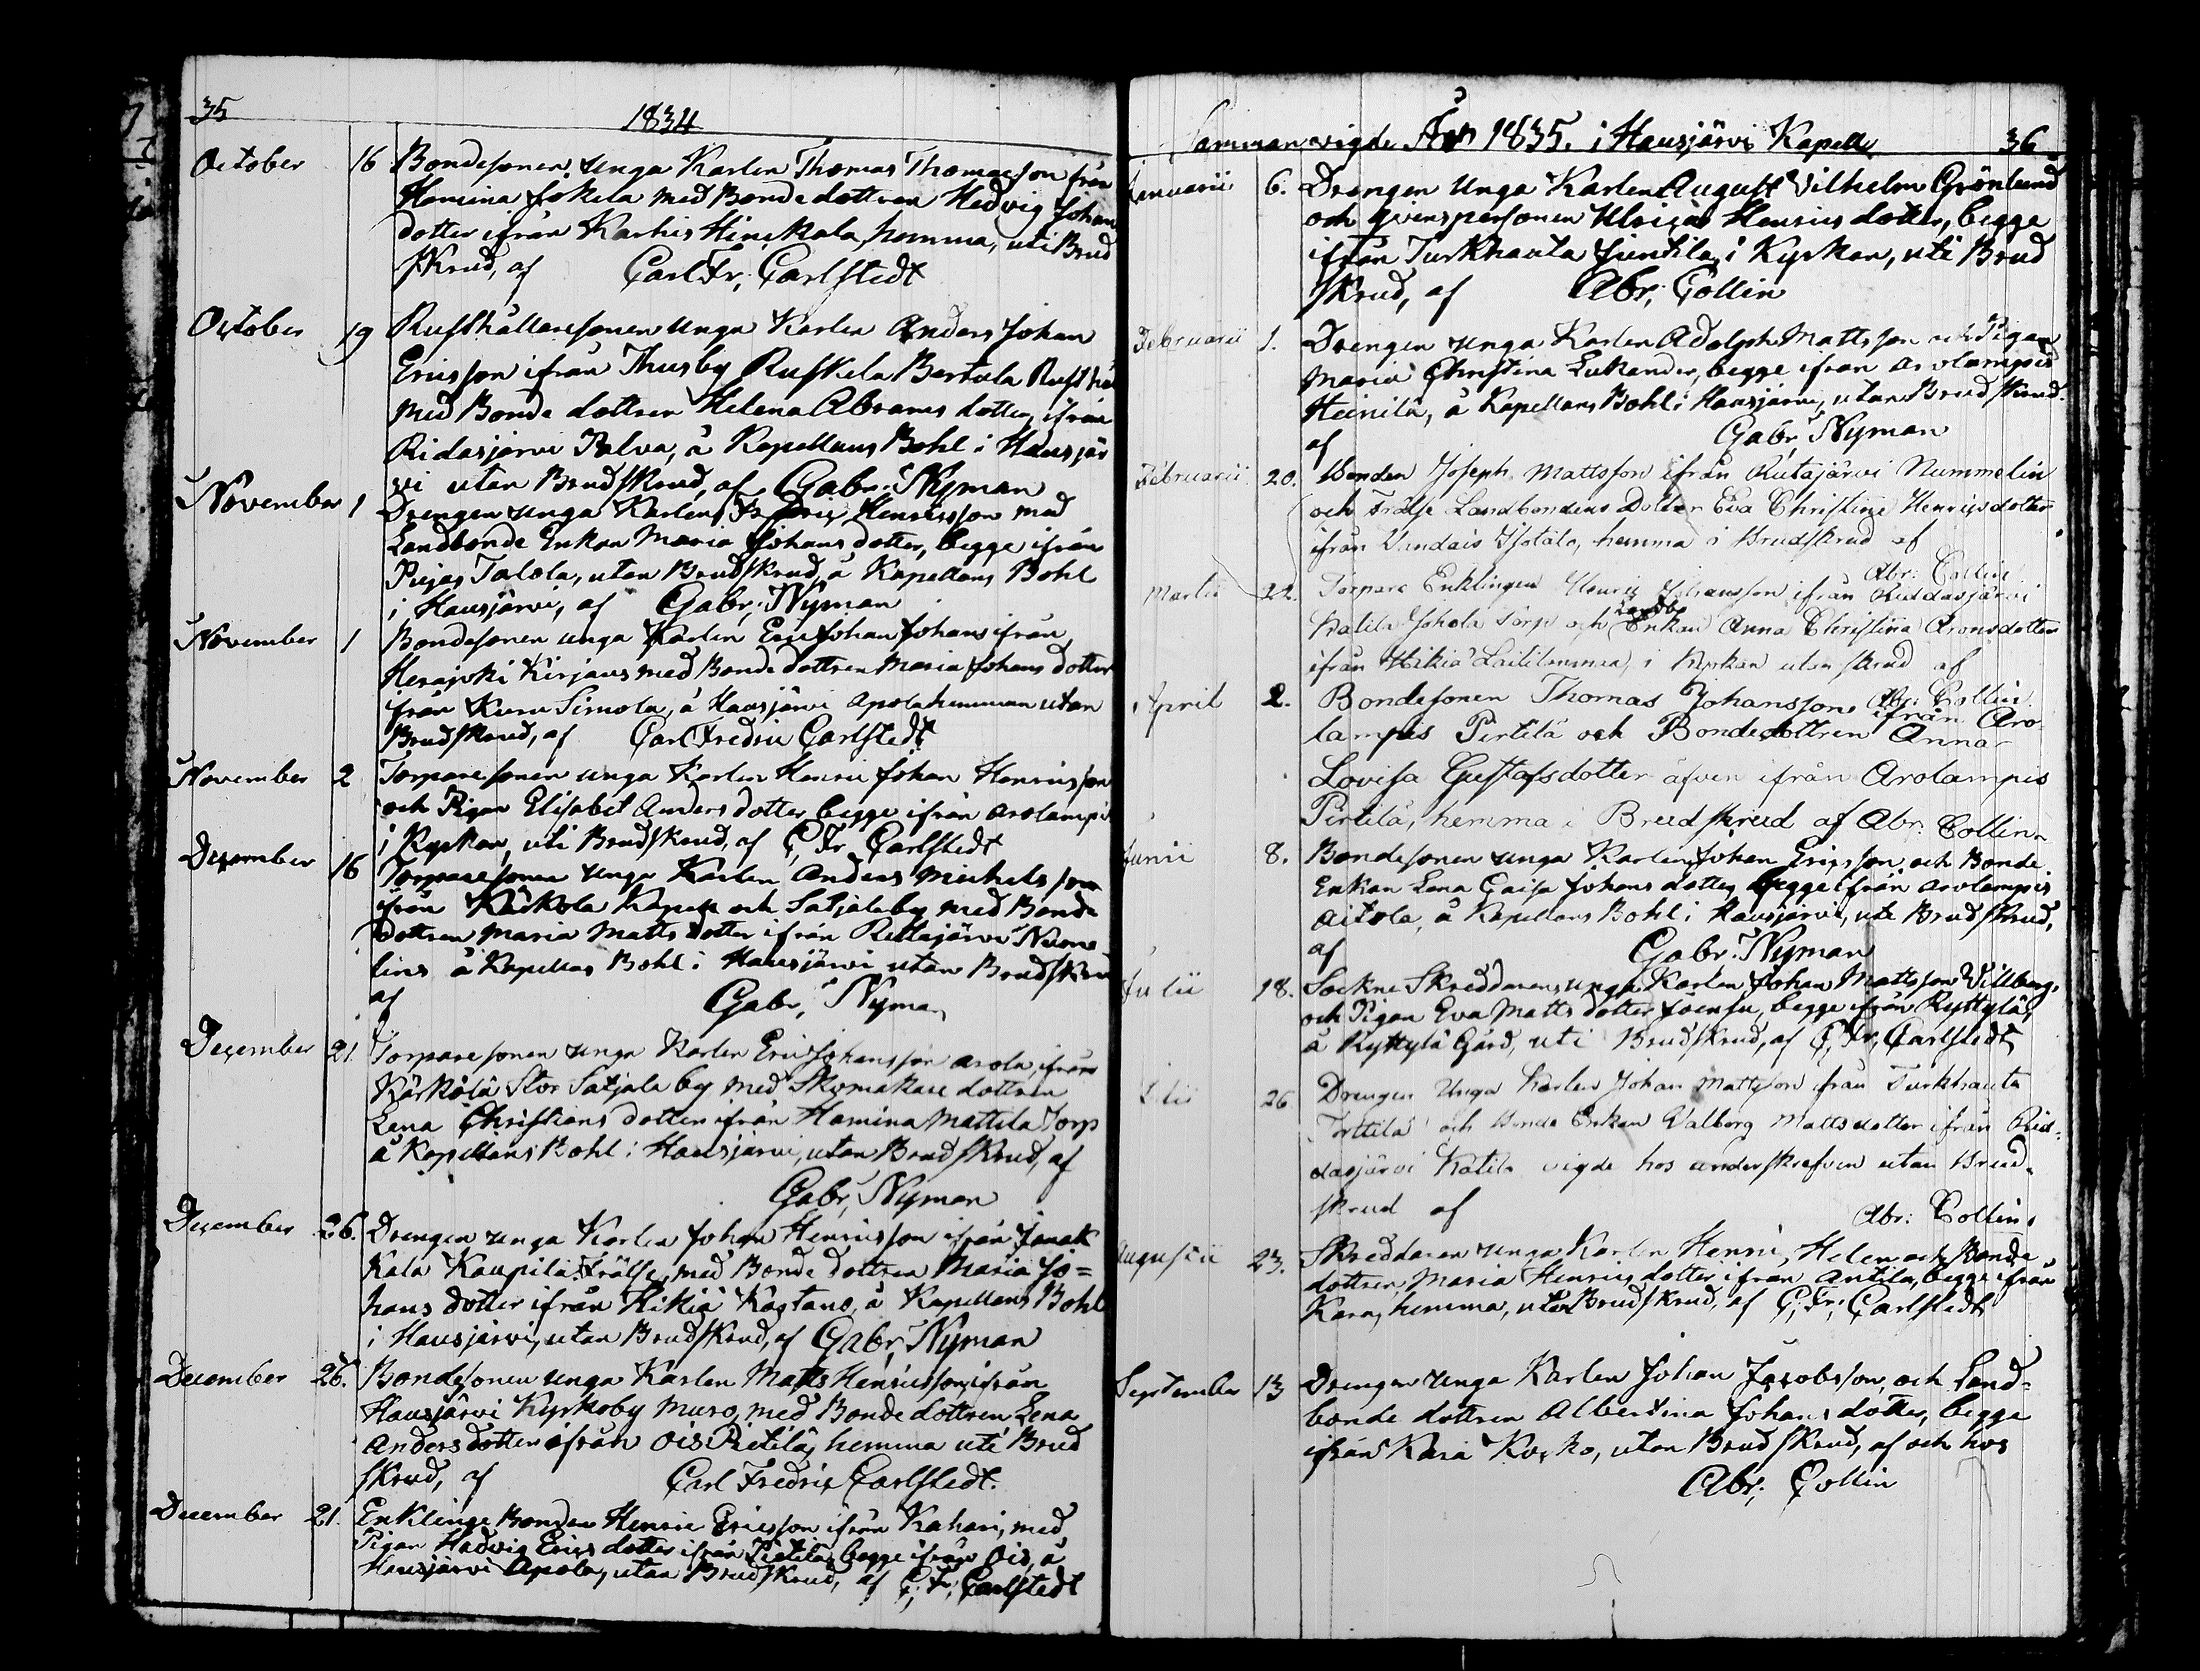 35
1834
October 16 Bondesonen unga Karlen Thomas Thomasson från
Hamina Jokela med Bondedottren Hedvig Johans
dotter ifrån Karhis Hinkala, hemma, uti Brud
skrud, af Carl Fr. Carlstedt
October 19 Rusthållaresonen unga Karlen Anders Johan
Ericsson ifrån Thusby Ruskela Bertula Rusthå
med Bonde dottren Helena Abrams dotter, ifrån
Ridasjärvi Palva, å Kapellans Bohl i Hausjär
vi utan Brudskrud, af Gabr. Nyman
November 1 Drengen unga Karlen Henricsson med
Landbonde Enkan Maria Johans dotter, begge ifrån
Pujas Talola, utan Brudskrud, å Kapellans Bohl
i Hausjärvi, af Gabr. Nyman
November 1 Bondesonen unga Karlen Eric Johan Johans ifrån
Herajoki Kirjans med Bonde dottren Maria Johans dotter
ifrån Kuru Simola, å Hausjärvi Apola hemman utan
Brudskrud, af Carl Fredric Carlstedt
November 2 Torparesonen unga Karlen Henric Johan Henricsson
och Pigan Elisabet Anders dotter begge ifrån Arolampi
i Kyrkan, uti Brudskrud, af C. Fr. Carlstedt
December 16 Torparesonen unga Karlen Anders Michelsson
ifrån Kärkola Kapell och Satjala by med Bonde
dottren Maria Matts dotter ifrån Rettajärvi
lins å Kapellas Bohl i Hausjärvi utan Brudskrud
af Gabr. Nyman
December 21. Torparesonen unga Karlen Eric Johansson Arola, ifrån
Kärkölä Stor Satjala by med Skomakare dottren
Lena Christians dotter ifrån Hamina Mattila Torp
å Kapellans Bohl i Hausjärvi, utan Brudskrud, af
Gabr. Nyman
December 26. Drengen unga Karlen Johan Henricsson ifrån Janak
kala Kaupila Frälse, med Bonde dottren Maria Jo=
hans dotter ifrån Hikiä Kastans, å Kapellans Bohl
i Hausjärvi, utan Brudskrud, af Gabr. Nyman
December 26. Bondesonen unga Karlen Matts Henricsson, ifrån
Hausjärvi Kyrkoby Muro, med Bonde dottren Lena
Anders dotter ifrån Ois Pietilä, hemma uti Brud
skrud, af Carl Fredric Carlstedt.
December 21. Enklinge Bonden Henric Ericsson ifrån Kahari, med
Pigan Hedvig Erics dotter ifrån Pietilä, begge ifrån Ois, å
Hausjärvi Apola, utan Brudskrud, af C. F. Carlstedt
Sammanvigde År 1835. i Hausjärvi Kapell 36
Januarii 6. Drengen Unga Karlen August Vilhelm Grönlund
och qvinspersonen Ulrica Henrics dotter, begge
ifrån Turkhauta Juntila, i Kyrkan, uti Brud
skrud, af Abr. Collin
Februarii 1. Drengen unga Karlen Adolph Mattsson och Pigan
Maria Christina Lukander, begge ifrån Arolampis
Heinilä, å Kapellans Bohl i Hausjärvi, utan Brudskrud.
af Gabr. Nyman
Februarii 20. Bonden Joseph Mattsson ifrån Rutajärvi Nummelin
och Frälse Landbondens Dotter Eva Christina Henricsdotter
ifrån Vandais Isotalo, hemma i Brudskrud af
Abr. Collin
Martii 22. Torpare Enklingen Henric Johansson ifrån Riddasjärvi
Katila Torp och Landb. Enkan Anna Christina Aronsdotter
ifrån Hikiä, i Kyrkan utan skrud af
Abr. Collin
April 2. Bondesonen Thomas Johansson ifrån Aro-
lampis Pirtilä och Bondedottren Anna
Lovisa Gustafsdotter äfven ifrån Arolampis
Pirtilä, hemma i Brudskrud af Abr. Collin
Junii 8. Bondesonen unga Karlen Johan Ericsson och Bonde
Enkan Lena Caisa Johans dotter begge ifrån Arolampis
Aitola, å Kapellans Bohl i Hausjärvi, uti Brudskrud,
af Gabr. Nyman
Julii 18. Sockne Skreddaren unga Karlen Johan Mattsson Villberg
och Pigan Eva Matts dotter, begge ifrån Ryttylä,
å Ryttylä Gård, uti Brudskrud, af C. Fr. Carlstedt
26 Drengen Unga Karlen Johan Mattsson ifrån Turkhauta
Torttila och Bonde Enkan Valborg Mattsdotter ifrån Rid-
dasjärvi Katila vigde hos underskrefven utan Brud-
skrud af Abr. Collin
Augustii 23. Skreddaren unga Karlen Henric Helen och Bonde
dottren Maria Henrics dotter ifrån Antila, begge ifrån
Kara, hemma, utan Brudskrud, af C. Fr. Carlstedt
September 13 Drengen unga Karlen Johan Jacobsson, och Land=
bonde dottren Albertina Johans dotter, begge
ifrån Kara Kocko, utan Brudskrud, af och hos
Abr. Collin